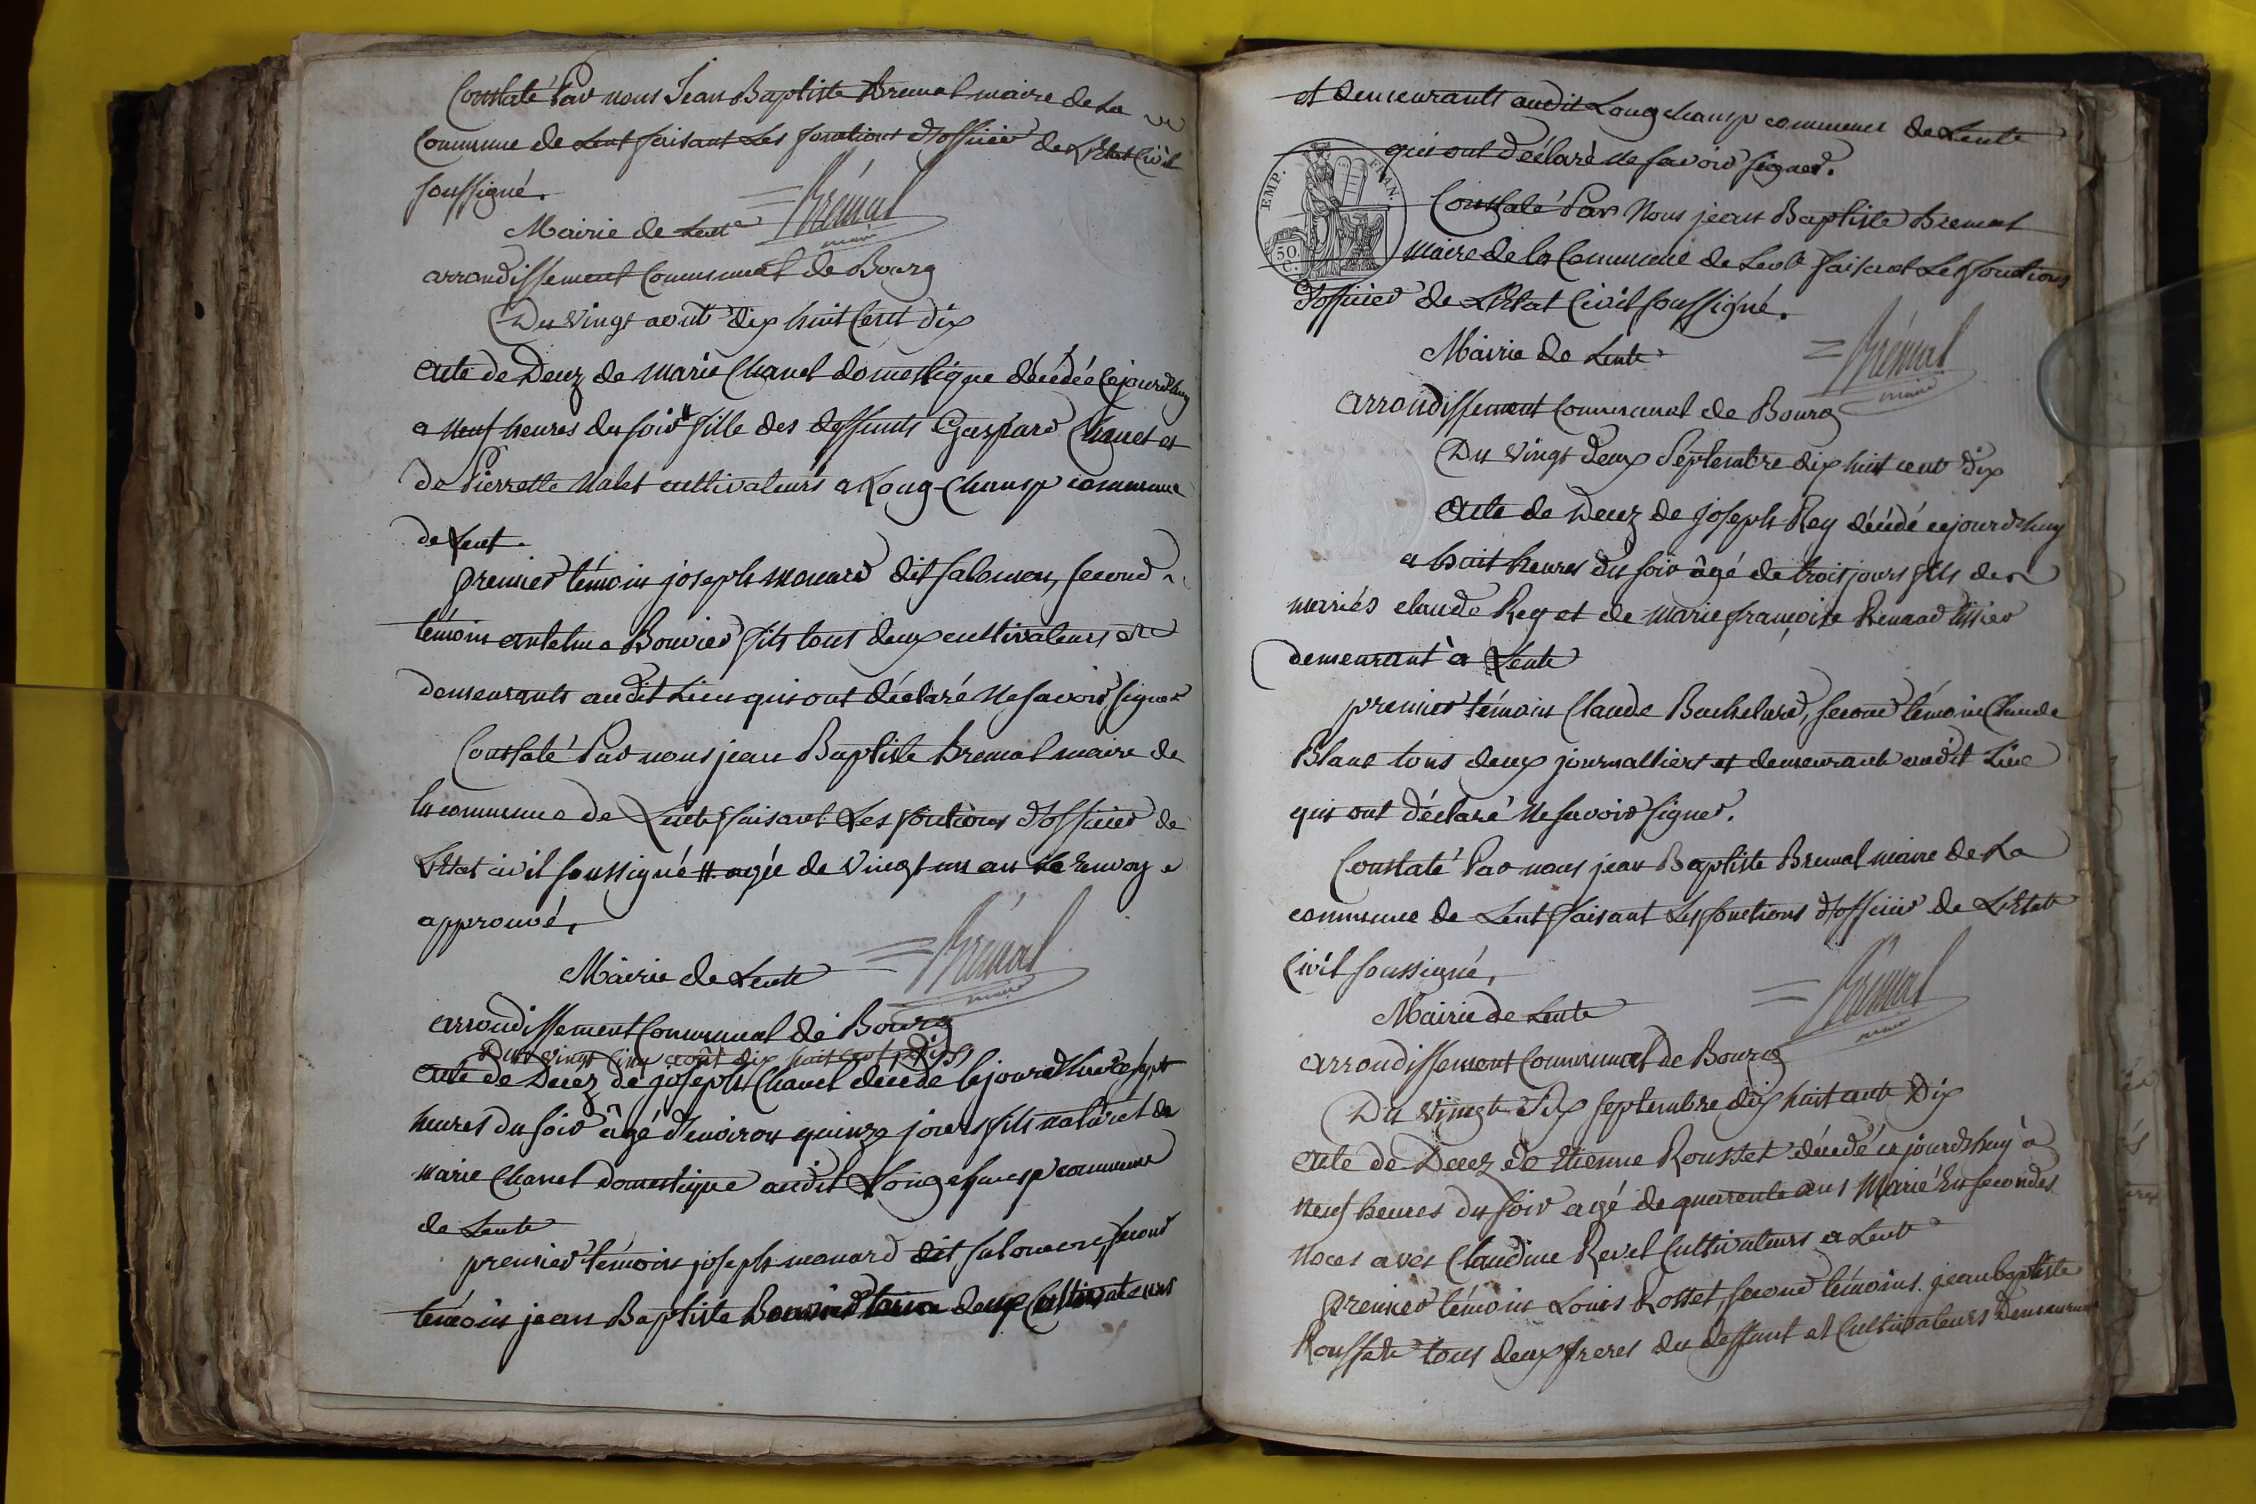 Constaté Par nous Jean Baptiste Bremal maire de La
Commune de Lent faisant Les fonctions d'officier de L'Etat Civil
soussigné.
Brémal
maire
Mairie de Lent
arrondissement Communal de Bourg
Du vingt août dix huit Cent dix
acte de Decez de marie Chanel domestique décédée Cejourdhuy
a neuf heures du soir # fille des deffunts Gaspard Chanel et
de Pierrette Nalet cultivateurs a Long-Champ commune
de Lent.
premier témoin joseph monard dit salomon, second
témoin antelme Bouvier fils tous deux cultivateurs et
demeurants audit Lieu qui ont déclaré ne savoir signer
Constaté Par nous jean Baptiste Bremal maire de
la commune de Lent faisant Les fonctions d'officier de
L'Etat civil soussigné # agée de vingt un an Le Renvoy
approuvé,
Brémal
maire
Mairie de Lent
arrondissement Communal de Bourg
Du vingt cinq août dix huit cent dix
acte de Decez de joseph Chanel decede Cejourdhui a sept
heures du soir âgé d'environ quinze jours fils naturel de
marie Chanel domestique audit Longchamp commune
de Lent
premier témoin joseph monard dit salomon, second
témoin jean Baptiste Bouvier tous deux Cultivateurs
et demeurants audit Longchamp commune de Lent
qui ont déclaré ne savoir signer.
EMP. FRAN.
50.
C.
Constaté Par Nous jean Baptiste Bremal
maire de la Commune de Lent faisant Les fonctions
d'officier de L'Etat Civil soussigné.
Brémal
maire
Mairie de Lent
arrondissement Communal de Bourg
Du vingt deux Septembre dix huit cent dix
acte de Decez de joseph Rey décédé cejourdhuy
a huit heures du soir âgé de trois jours fils des
mariés claude Rey et de marie françoise Renaud tissier
demeurant à Lent
premier témoin Claude Bachelard, second témoin Claude
Blanc tous deux journalliers et demeurant audit Lieu
qui ont déclaré ne savoir signer.
Constaté Par nous jean Baptiste Bremal maire de La
commune de Lent faisant Les fonctions d'officier de L'Etat
Civil soussigné,
Brémal
maire
Mairie de Lent
arrondissement Communal de Bourg
Du vingt Six septembre dix huit cent Dix
acte de Decez de Etienne Rousset décédé cejourdhuy a
neuf heures du soir agé de quarente ans Marié En secondes
noces avec Claudine Revel Cultivateurs a Lent
premier témoin Louis Rosset, second témoins jean baptiste
Rousset tous deux freres du deffunt et Cultivateurs demeurant